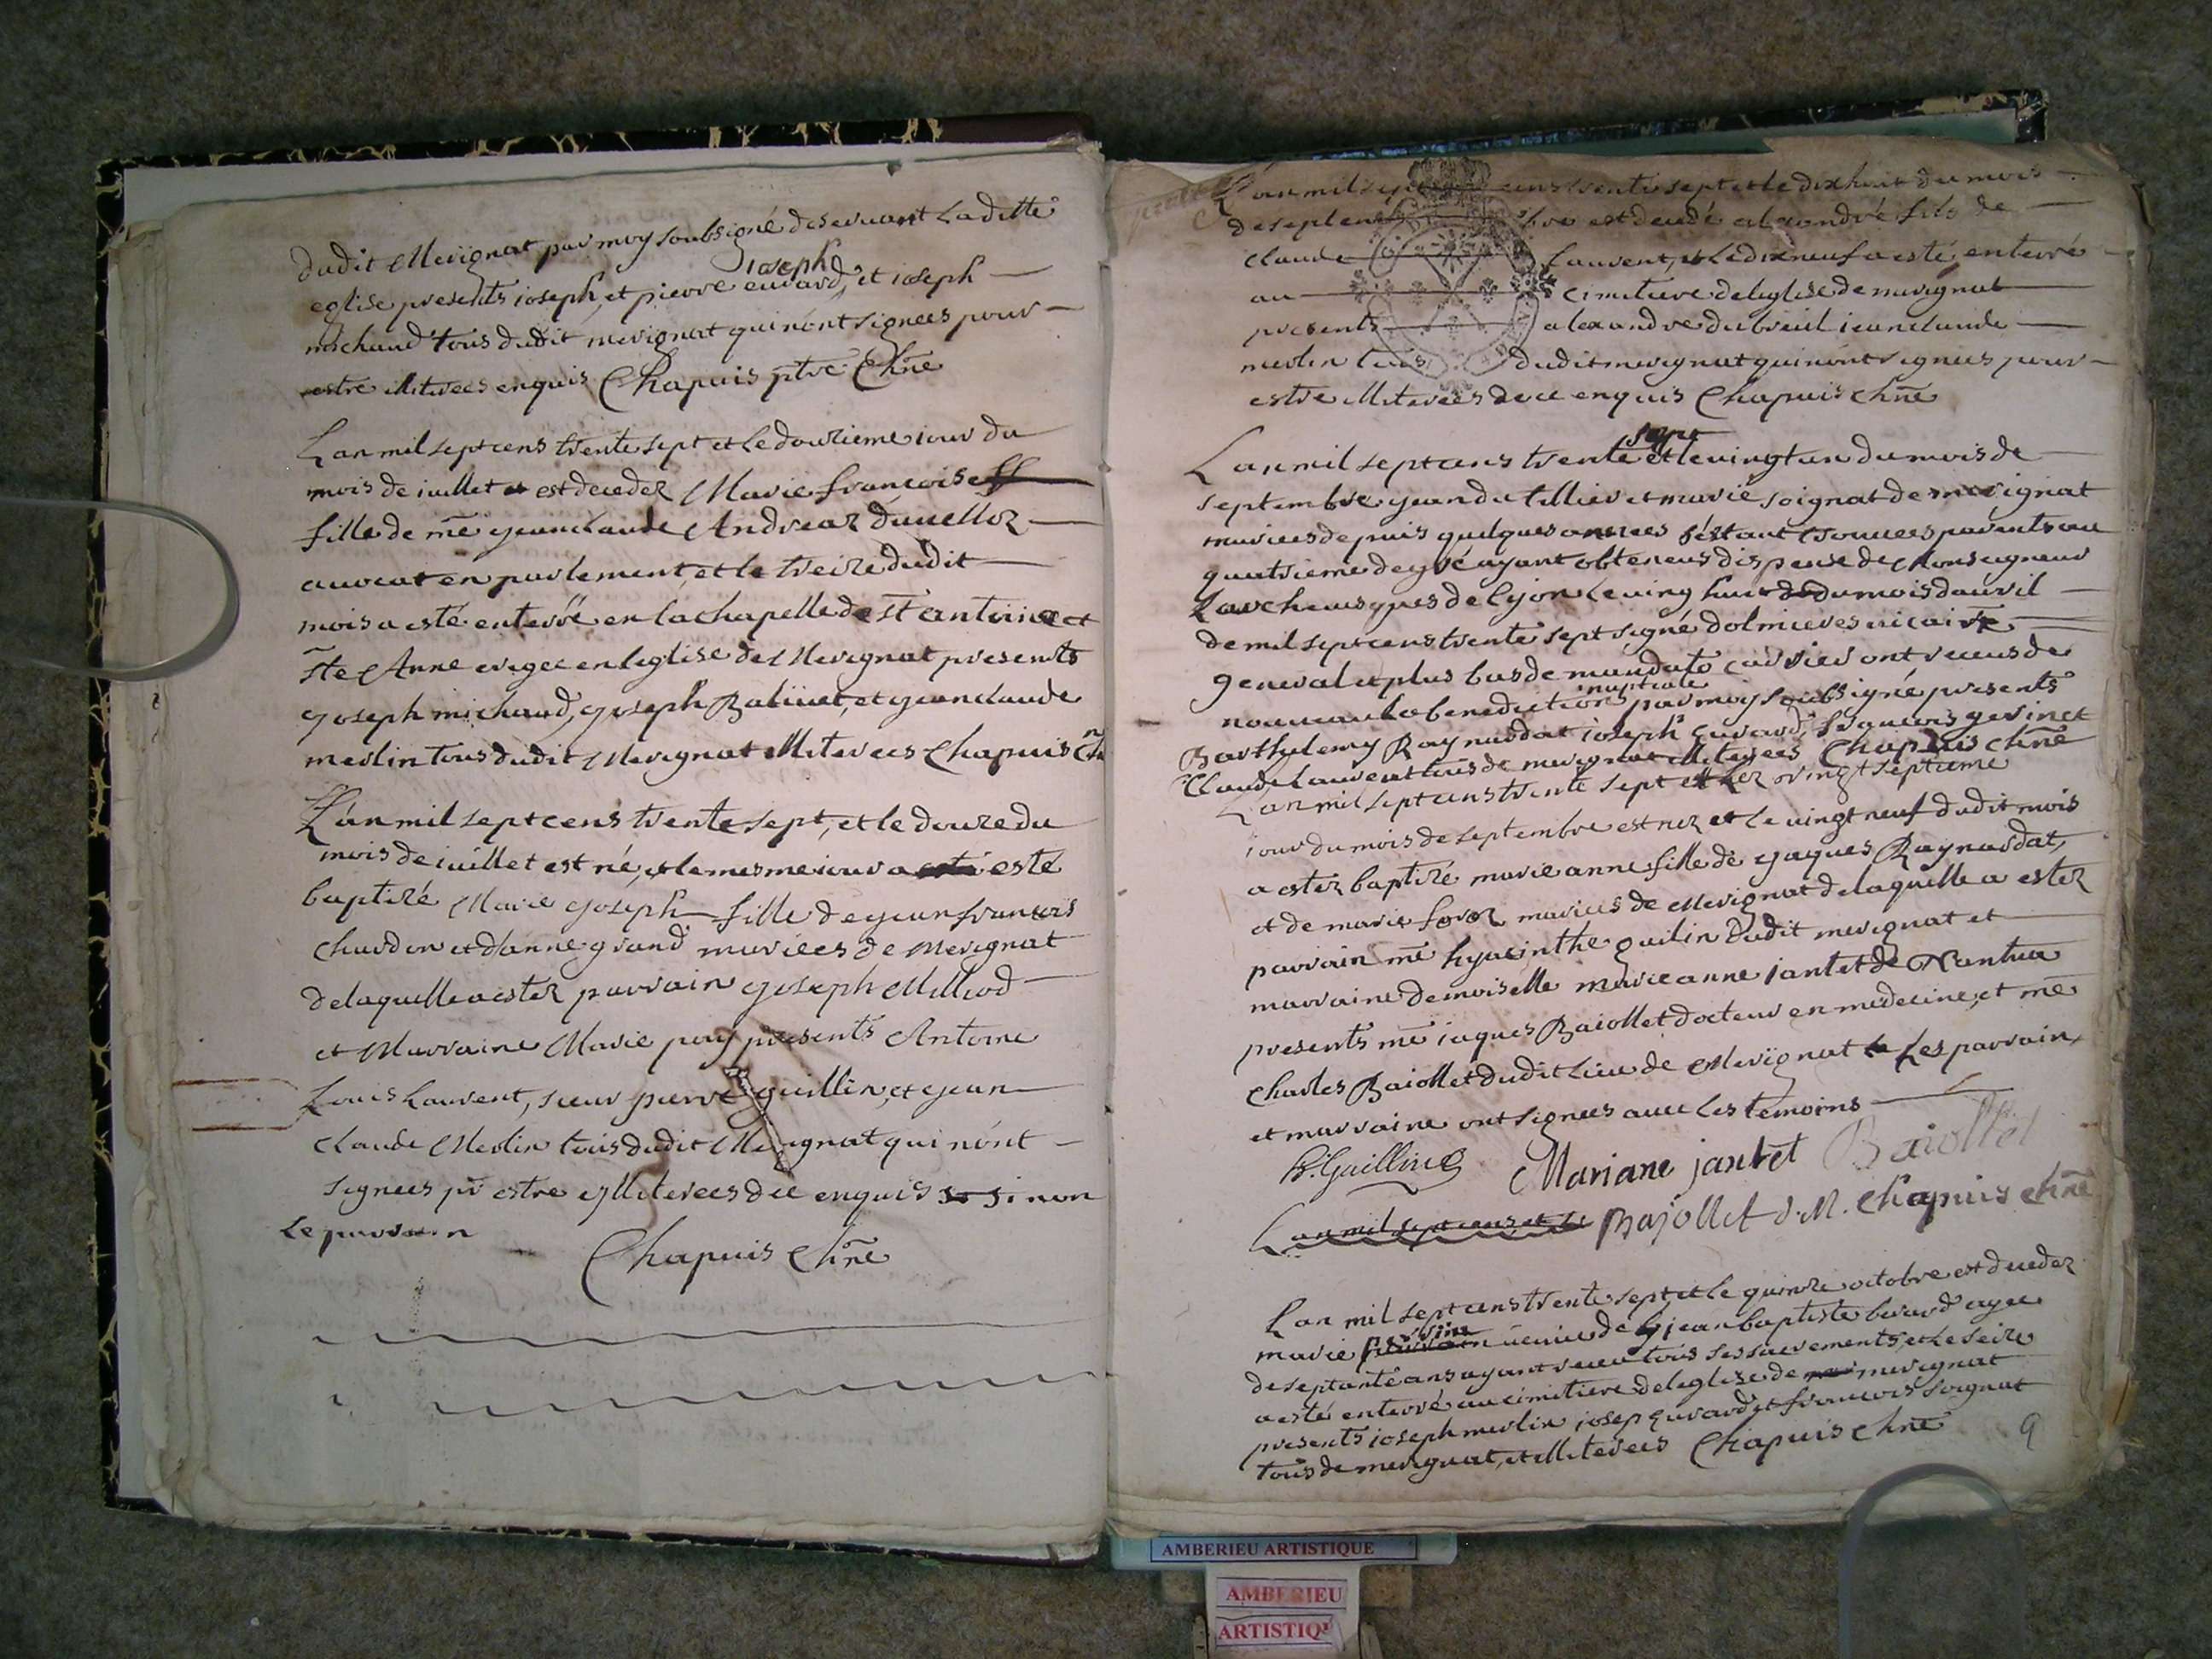 dudit Merignat par moy soubsigné deservant laditte
ioseph
eglise presents ioseph, et pierre euvard, et ioseph
michaud tous dudit merignat qui n'ont signees pour
estre illiterees enquis Chapuis ptre Chne
Lan mil sept cens trente sept et le douzieme iour du
mois de iuillet est decedez Marie françoise
fille de me jean claude Andrea
avocat en parlement, et le treize dudit
mois a esté enterré en la chapelle de st antoine et
ste Anne erigee en leglise de Merignat presents
joseph michaud, joseph Balivet, et jean claude
merlin tous dudit Merignat illiterees Chapuis Chne
L'an mil sept cens trente sept, et le douze du
mois de iuillet est né, et le mesme iour a esté
baptizé Marie joseph fille de jean françois
chardon et d'anne grand mariees de Merignat
de laquelle a estez parrain joseph Milliod
et Marraine Marie puy presents Antoine
Louis Laurent, sieur pierre guillin, et jean
claude Merlin tous dudit Merignat qui n'ont
signees pr estre illiterees de ce enquis si non
le parrain
Chapuis Chne
L'an mil sept cens trente sept et le dixhuit du mois
de septembre est decedé alexandre fils de
claude Laurent, et le dixneuf a esté enterré
au cimetiere de leglise de merignat
presents alexandre dubreuil iean claude
merlin tous dudit merignat qui n'ont signees pour
estre illiterees de ce enquis Chapuis Chne
sept
Lan mil sept cens trente et le vingt un du mois de
septembre jean du tillier et marie soignat de merignat
mariees depuis quelques annees s'estant trouvees parents au
quatrieme degré ayant obteneus dispense de Monseigneur
Larchevesques de lyon le ving huit du mois davril
de mil sept cens trente sept signé dolmieres vicaire
general et plus bas de mandato carrier ont receus de
nuptiale
nouveau la benediction par moy soubsigné presents
Barthelemy Raynardat ioseph euvard, françois gerinet
Claude Laurent tous de merignat illiterees Chapuis Chne
Lan mil sept cens trente sept et le vingt septieme
iour du mois de septembre est nez et le vingt neuf dudit mois
a estez baptizé marie anne fille de jaques Raynardat,
et de marie forez mariees de Merignat de laquelle a estez
parrain me hyacinthe guilin dudit merignat et
marraine demoiselle marie anne jantet de Nantua
presents me iaques Baiollet docteur en medecine, et me
Charles Baiollet dudit Lieu de Merignat les parrain,
et marraine ont signees avec les temoins
h. Guilline Mariane jantet Baiollet
Lan mil sept cens et le Bajollet d. M. Chapuis Chne
Lan mil sept cens trente sept, et le quinze octobre est decedez
perrine
marie veuve de jean baptiste buard agee
de septante ans ayant receu tous ses sacrements, et le seize
a esté enterré au cimetiere de leglise de merignat
presents ioseph merlin, iosep euvard, et françois soignat
tous de merignat, et illiterees Chapuis Chne
9
AMBERIEU ARTISTIQUE
AMBERIEU
ARTISTIQ